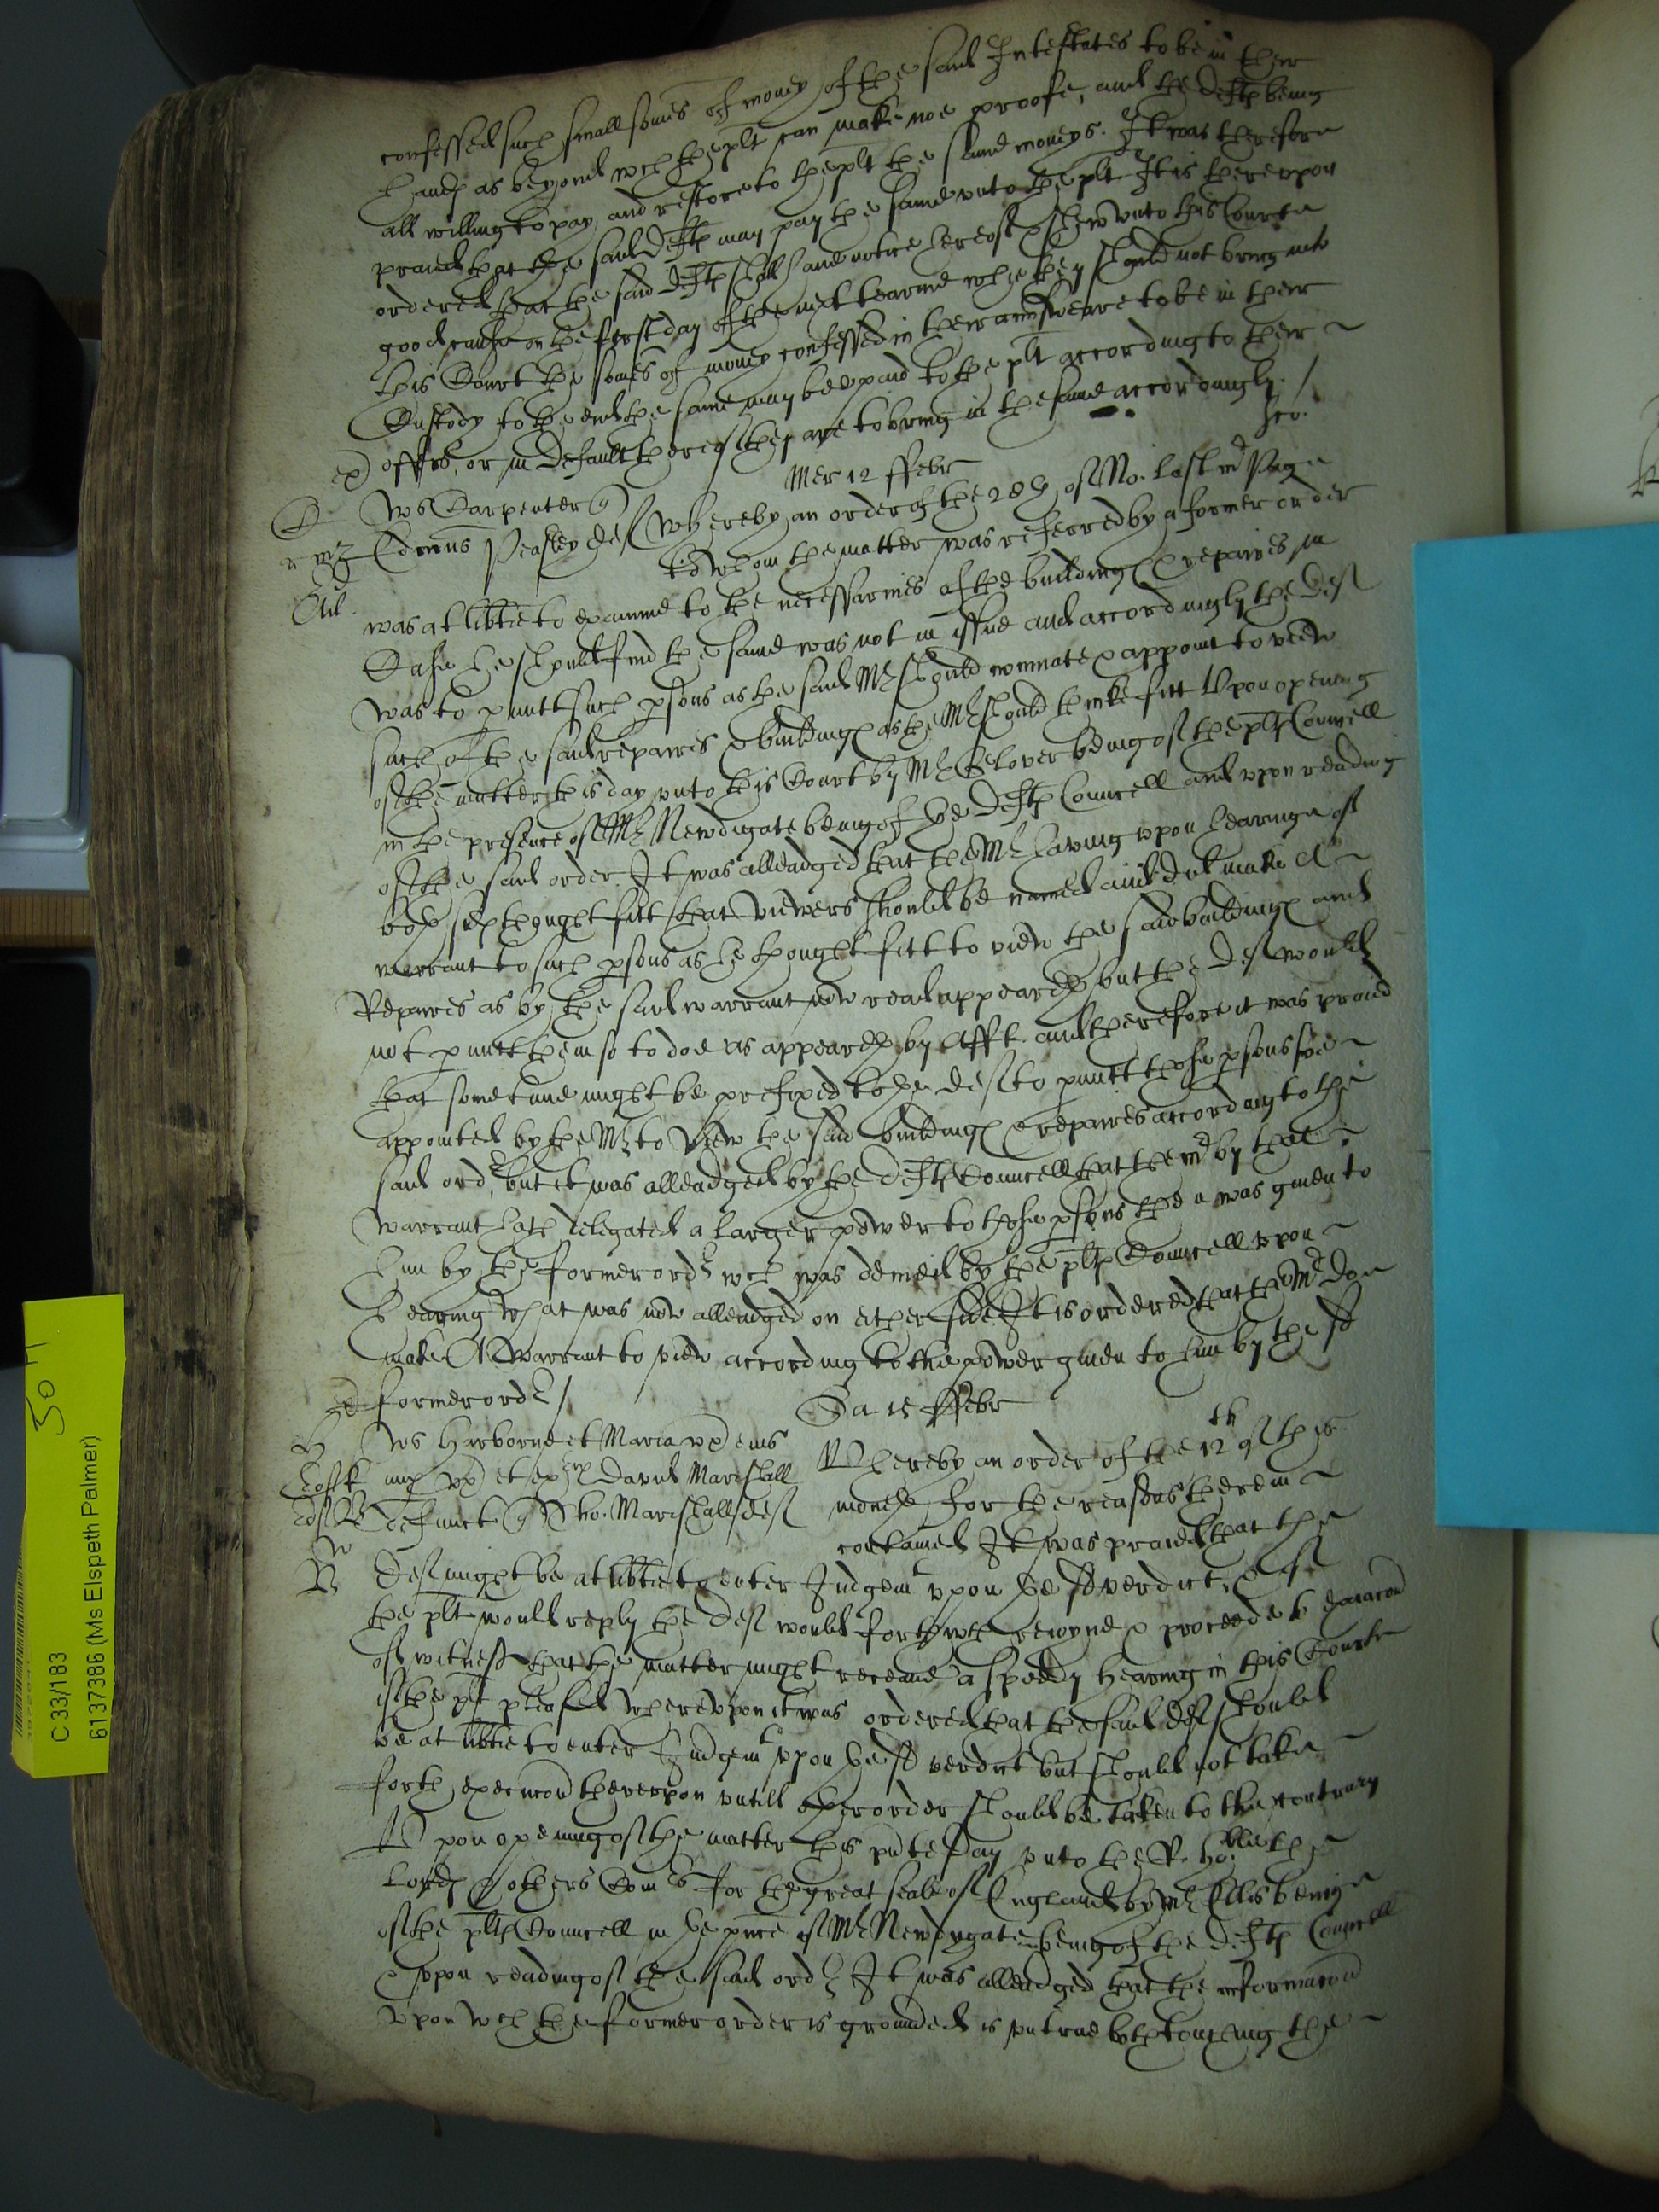 confessed such small somes of money of the said Intestates to be in their
hands as beyond wch the plt can make noe proofe, and the defts being
all willing to pay and restore to the plt the same moneys. It was therefore
praied that the said defts may pay the same unto the plt It is thereupon
ordered that the said defts shall have notice hereof & shew unto this Court
good cause on the first day of the next tearme why they should not bring into
this Court the somes of money confessed in their answeare to be in their
Custody to the end the same may bee paid to the plt according to their
offers, or in default thereof they are to bring in the same accordingly /
Mer 12 ffebr
Ws Carpenter q
Edrus Peasley def
Whereby an order of the 28th of No. last mr Page
to whom the matter was referred by a former order
was at libtie to examine to the necessaries of the buildings & repaires in
Case he should find the same was not in issue and accordingly the def
was to pmitt such psons as the said Mr should nominate & appoint to view
such of the said repaires & buildings as the Mr should thinke fitt Upon opening
of the matter this day unto this Court by Mr Glover being of the plts Councell
in the presence of Mr Newdigate being of the defts Councell and upon reading
of the said order. It was alleadged that the Mr having upon hearinge of
both sides thought fitt that viewers should be named and did make A
warrant to such psons as he thought fitt to view the said buildings and
Repaires as by the said warrant now read appeareth but the def would
not pmitt them so to doe as appeareth by Afft. and therefore it was praied
that some time might be prefixed to the def to pmitt those psons soe
appointed by the Mr to view the said buildings & repaires according to the
said ordr, but it was alleadged by the defts Councell that the mr by that
warrant hath delegated a larger power to those psons then was given to
him by the former ordr wch was denied by the plts Councell upon
hearing what was now alleadged on either side It is ordered that the Mr doe
make A Warrant to view according to the power given to him by the sd
former ordr /
Sa 15 ffebr
Ws Harborne et Maria ux eius
nup ux et extrix David Marshall
defunct q Tho. Marshall def
Whereby an order of the 12th of this
moneth for the reasons therein
contained It was praied that the
def might be at libtie to enter Judgemt upon the sd verdict, & if
the plt would reply the def would forthwth rejoyne & proceede to exaiacon
of witness that the matter might receave a speedy hearing in this Court
if the plt pleased whereupon it was ordered that the said def should
be at libtie to enter Judgemt upon the sd verdict but should not take
forth execucon thereupon untill other order should be taken to the contrary
Upon opening of the matter this pnte day unto the R. hoble the
Lords & others Comrs for the great seale of England by Mr Ellis being
of the plts Councell in the pnce of Mr Newdygate being of the defts Councell
& upon reading of the said ordr It was alleadged that the informacon
upon wch the former order is grounded is untrue touching the
30 H
C 33/183
6137386 (Ms Elspeth Palmer)